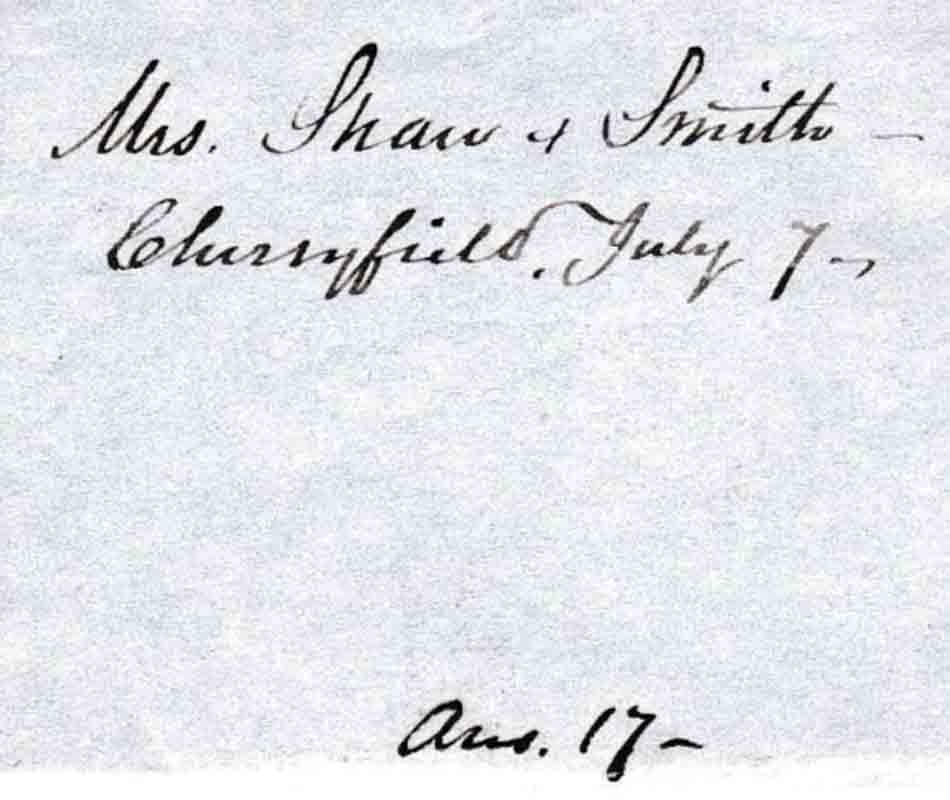 Mrs. Shaw & Smith –
Cherryfield. July 7 –,
Ans. 17 –